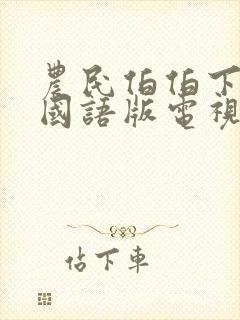 農民伯伯下
國語版電視
佔下車